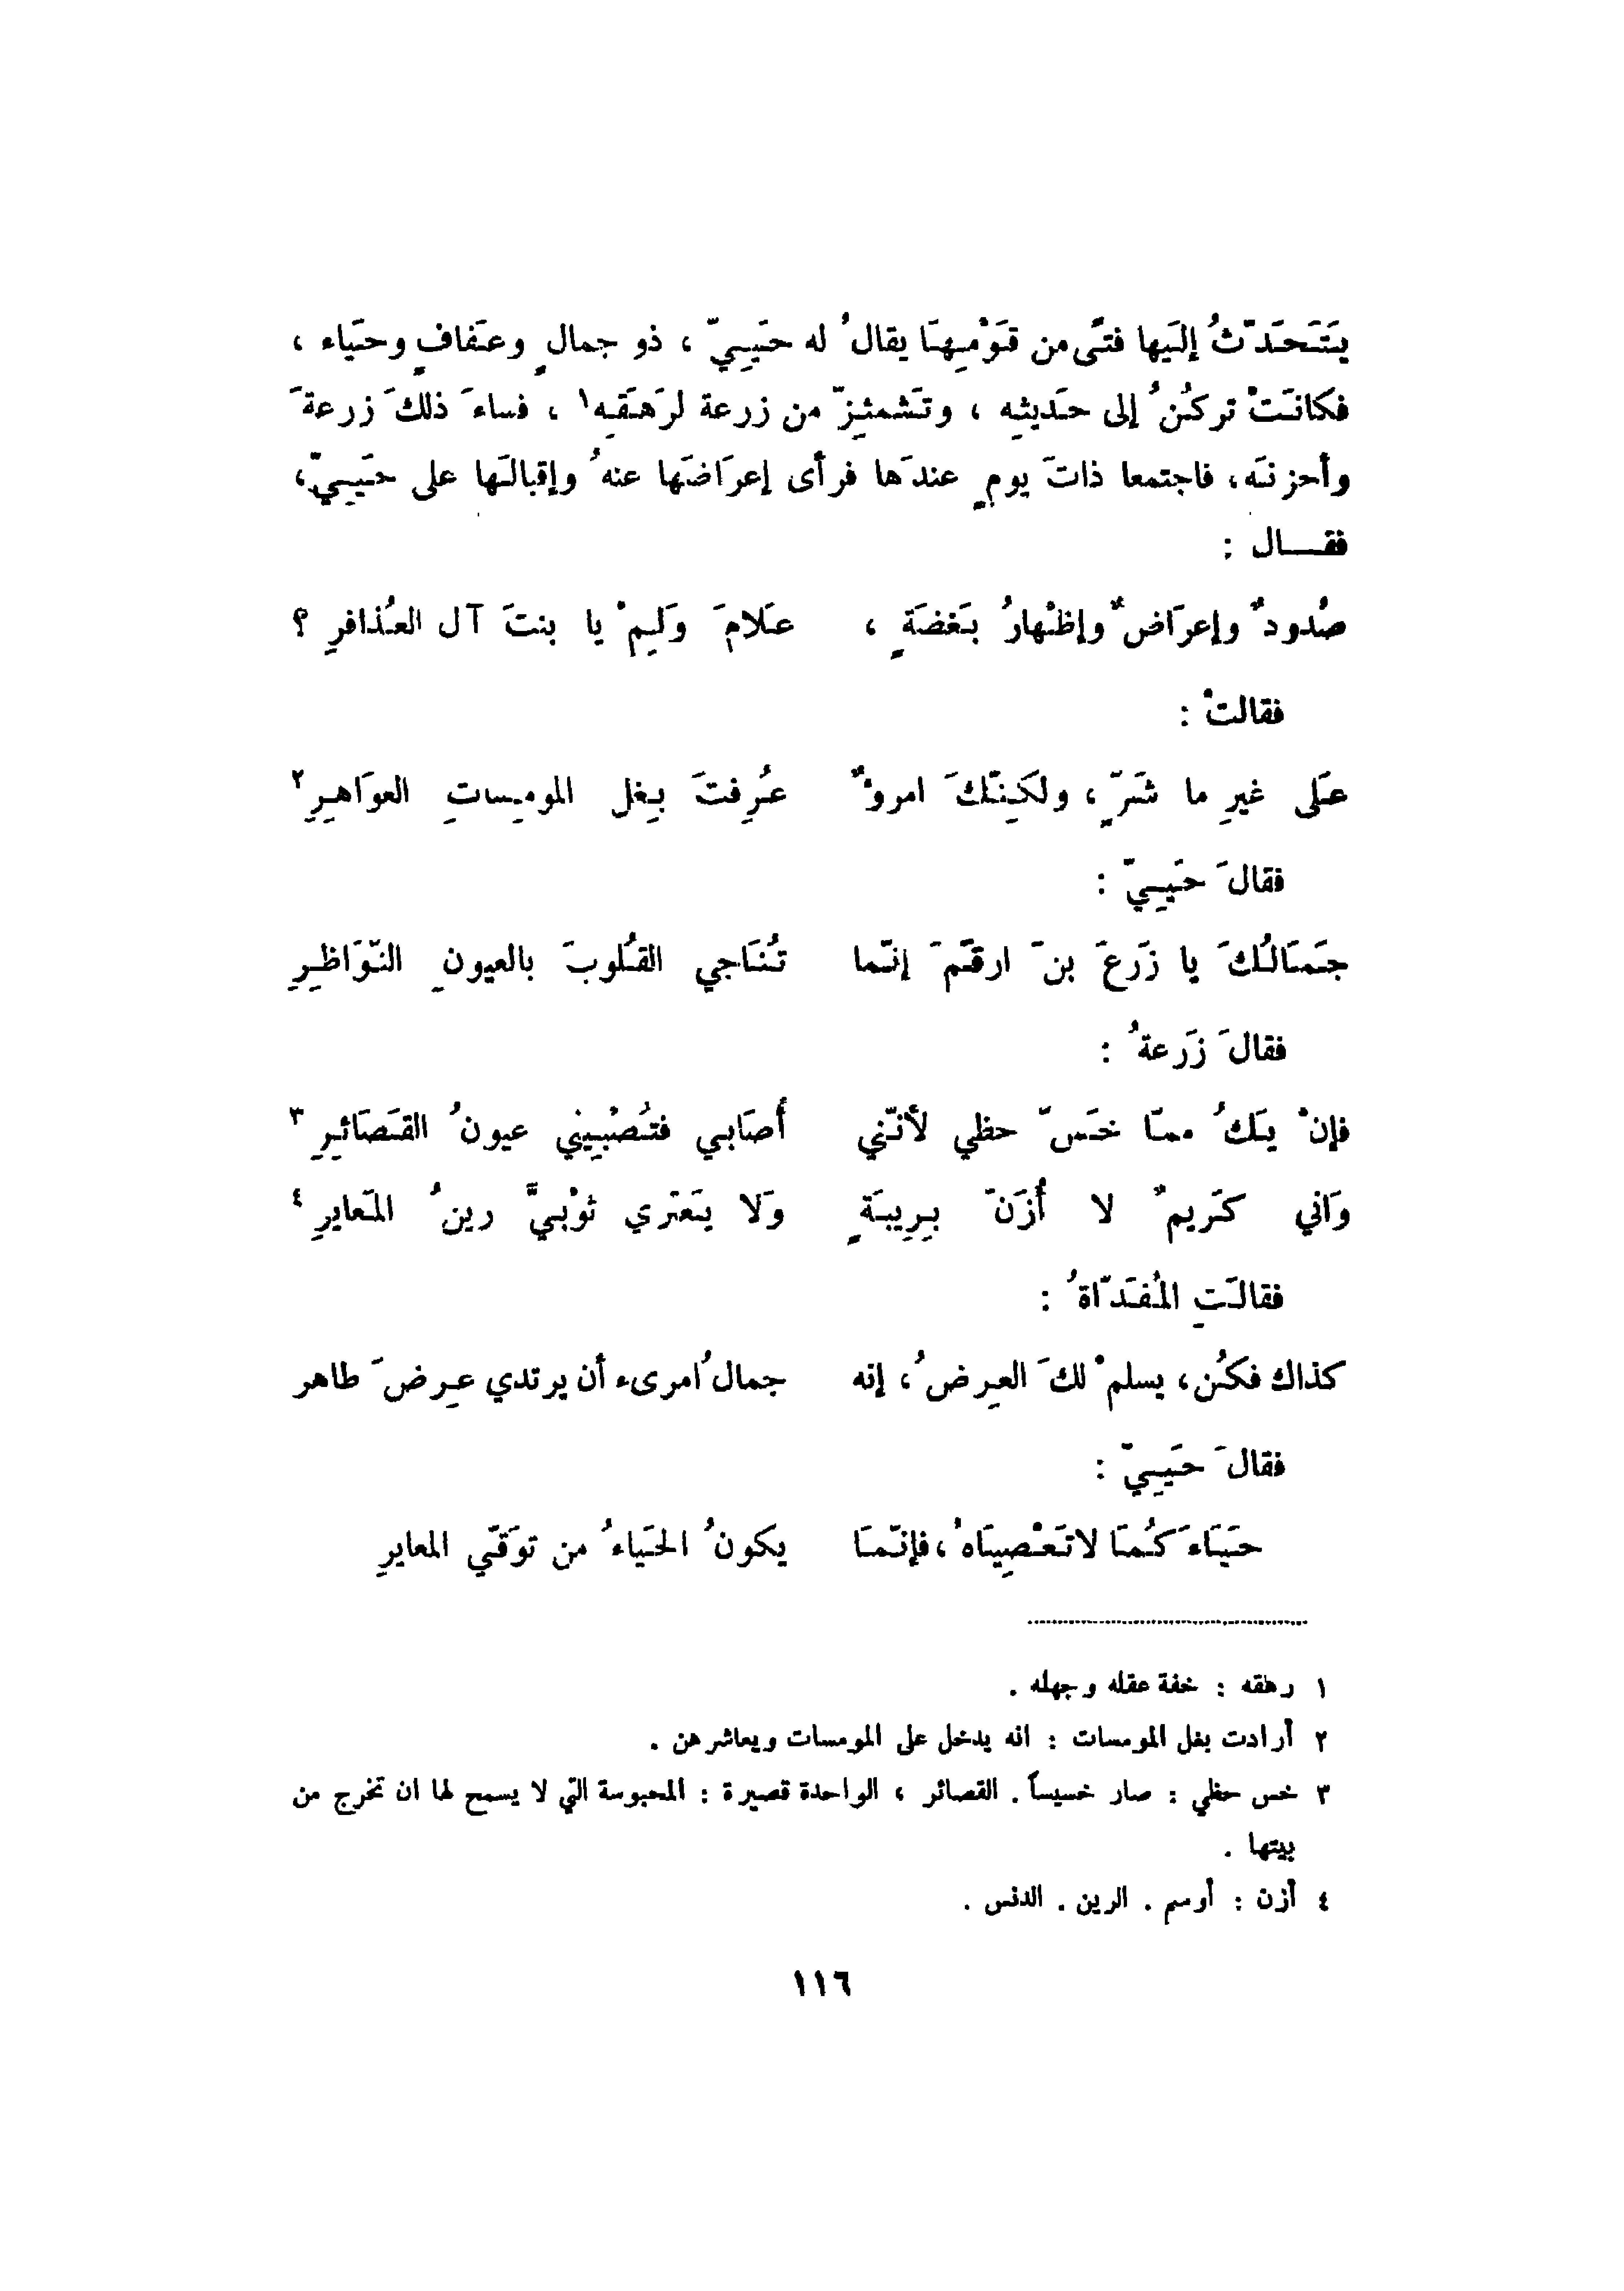 يَتَحَدّثُ إلَيها فتًى من قَوْمِهَا يقالُ له حَيِيّ ، ذو جمالٍ وعَفافٍ وحَياء ،
فكانَتْ تركُنُ إلى حَديثِه ، وتَشمئِزّ من زرعة لرَهَقِه١ ، فساءَ ذلكَ زرعةَ
وأحزنَه ، فاجتمعا ذاتَ يومٍ عندَها فرأى إعرَاضَها عنهُ وإقبالَها على حَيِيّ،
فقـــال :
صُدودٌ وإعرَاضٌ وإظْهارُ بَغضَةٍ ، عَلامَ وَلِمْ يا بنتَ آل العُذافرِ ؟
فقالتْ :
عَلى غيرِ ما شَرٍّ ، ولكِنّكَ امرؤٌ عُرِفتَ بِغل المومِساتِ العوَاهِرِ٢
فقالَ حَيِيّ :
جَمَالُكَ يا زَرعَ بنَ ارقَمَ إنّما تُنَاجي القُلوبَ بالعيونِ النّوَاظِرِ
فقالَ زَرعةُ :
فإنْ يَكُ ممّا خَسّ حظي لأنّني أُصَابي فتُصْبِيني عيونُ القَصَائِرِ ٣
وَاني كَريمٌ لا أُزَنّ بِرِيبَةٍ وَلا يَعتري ثوْبيَّ رينُ المَعايرِ ٤
فقالَتِ المُفَدّاةُ :
كذاك فكُن، يسلمْ لكَ العِرضُ، إنه جمالُ امرىء أن يرتدي عِرضَ طاهر
فقالَ حَيِيّ :
حَيَاءَكُمَا لا تَعْصِيَاهُ ، فإنّمَا يكونُ الحَياءُ من توَقّي المعايرِ
١ رهقه : خفة عقله وجهله .
٢ أرادت بغل المومسات : انه يدخل على المومسات ويعاشرهن .
٣ خس حظي : صار خسيساً . القصائر ، الواحدة قصيرة : المحبوسة التي لا يسمح لها ان تخرج من
بيتها .
٤ أزن : أوسم . الرين . الدنس .
١١٦